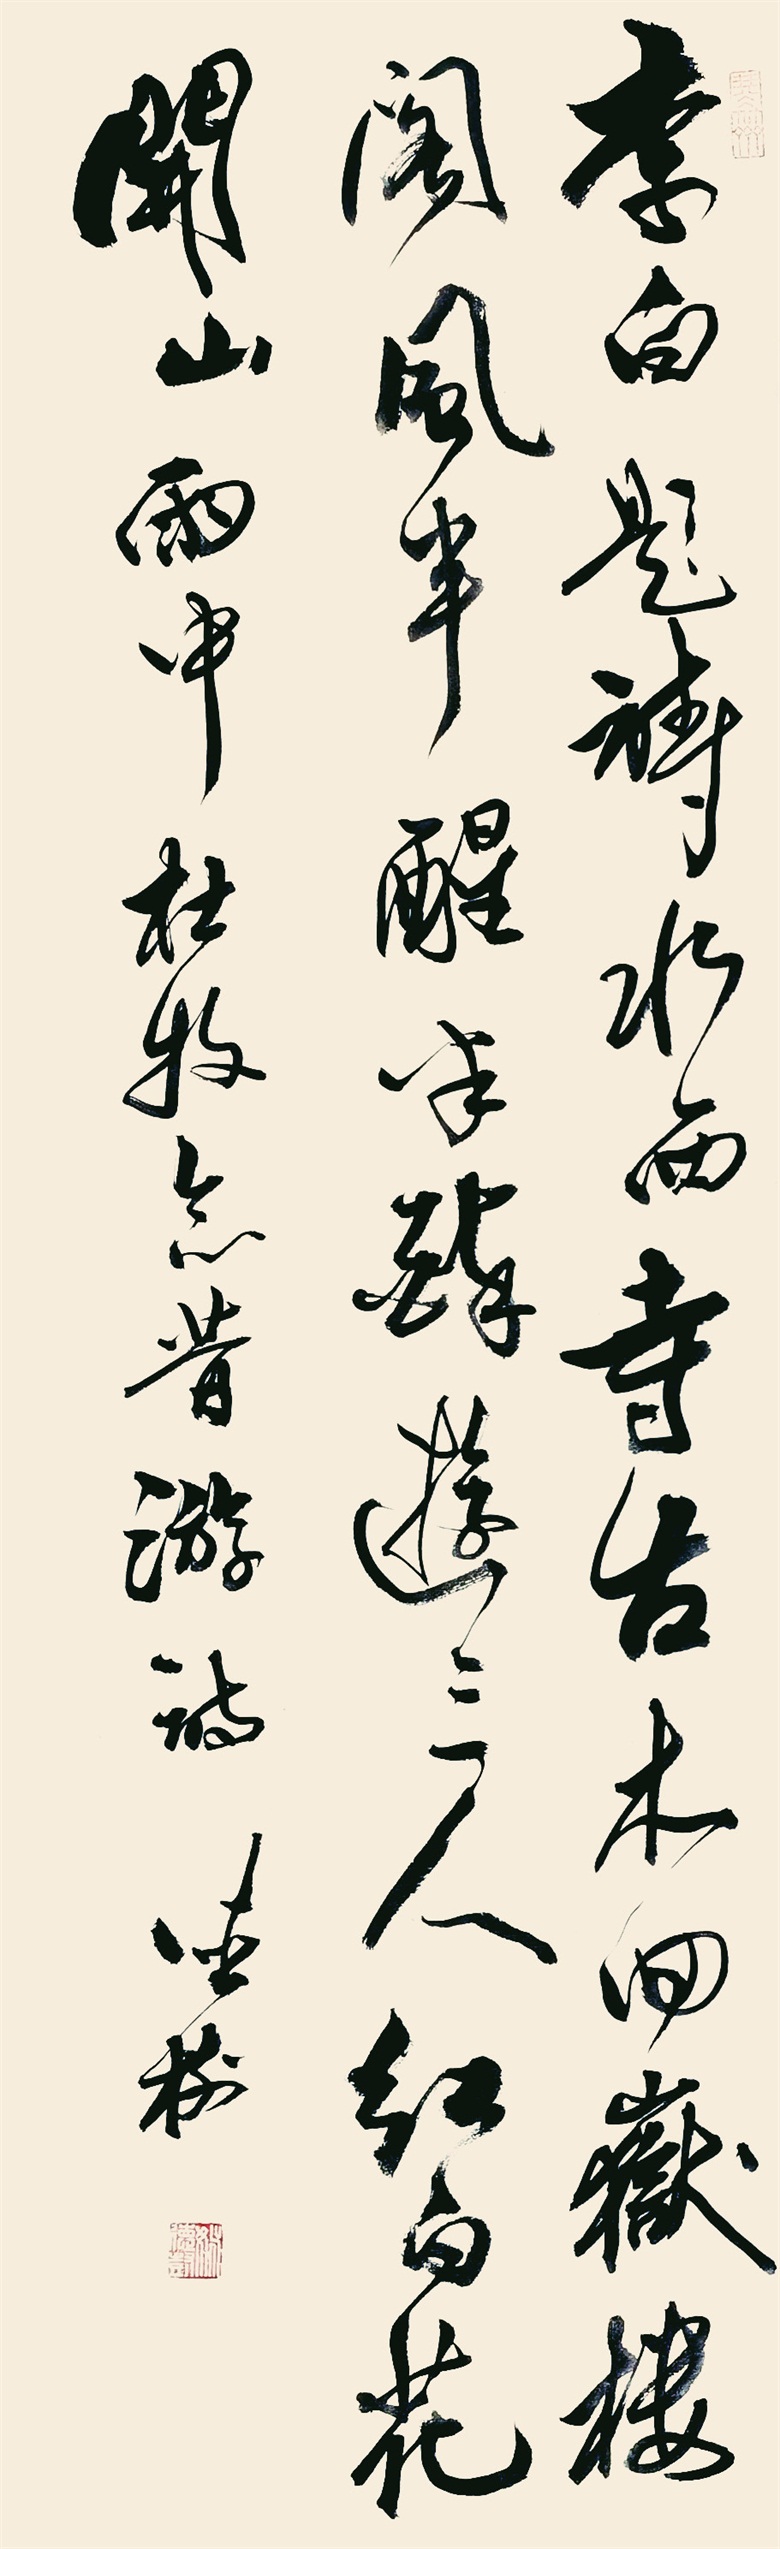 李白題詩水西寺古木回巖樓
閣風半醒半醉遊三人紅白花
開山雨中 杜牧念昔游詩 德樹